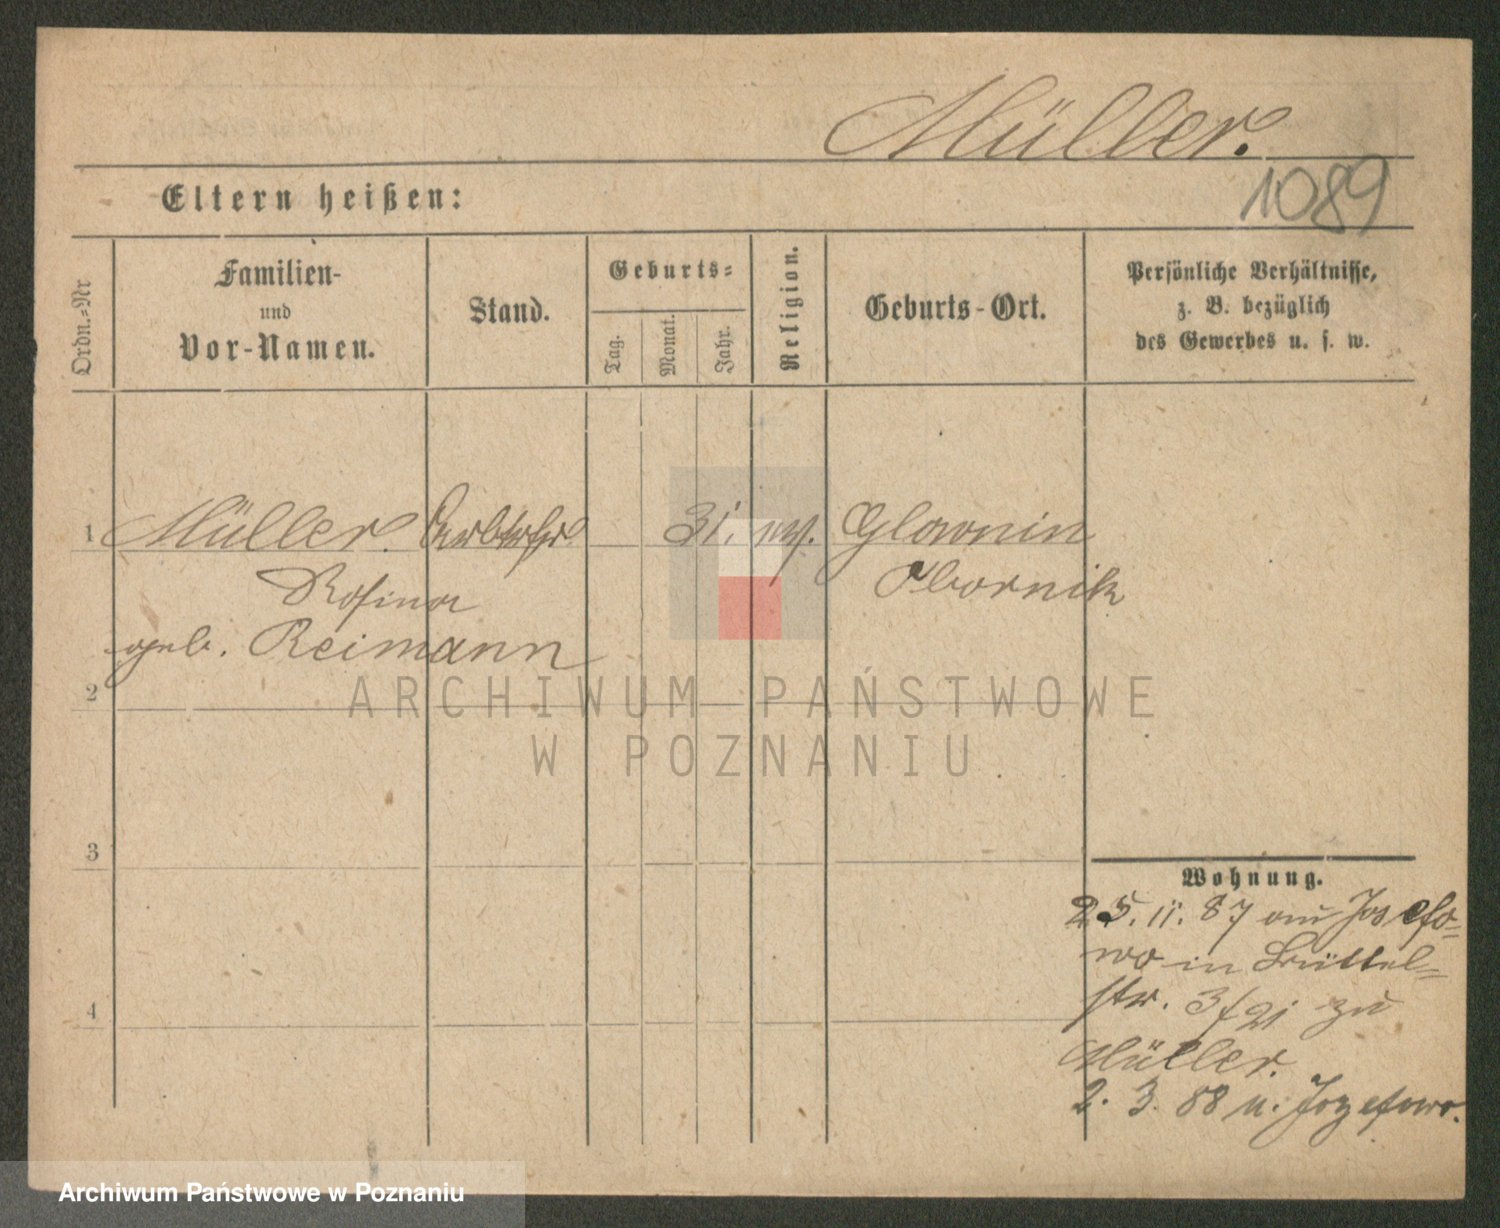 Müller.
1089
Eltern heißen:
Ordn.=Nr
Familien-
und
Vor-Namen.
Stand.
Geburts=
Tag.
Monat.
Jahr.
Religion.
Geburts-Ort.
Persönliche Verhältnisse,
z. B. bezüglich
des Gewerbes u. s. w.
1 Müller. 31. ev. Glownin
Rosina Obornik
geb. Reimann
2
ARCHIWUM PAŃSTWOWE
W POZNANIU
3
Wohnung.
25. 11. 87 aus Josefo=
wo in Büttel=
4
str. 3/21 zu
Müller.
2. 3. 88 n. Jozefowo.
Archiwum Państwowe w Poznaniu